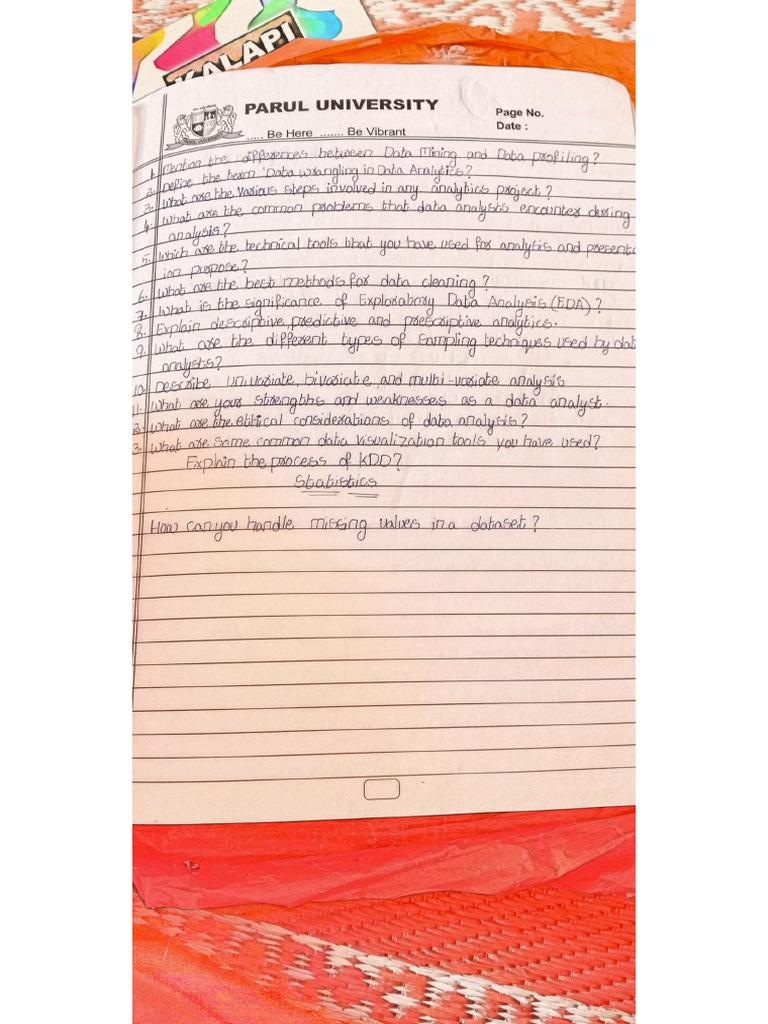 KALAPI
PARUL UNIVERSITY
Page No.
Date :
..... Be Here ....... Be Vibrant
1. Mention the differences between Data Mining and Data profiling?
2. Define the term 'Data Wrangling in Data Analytics?
3. What are the various steps involved in any analytics project?
4. What are the common problems that data analysts encounter during
analysis?
5. Which are the technical tools that you have used for analysis and present
ion propose?
6. What are the best methods for data cleaning?
7. What is the significance of Exploratory Data Analysis (EDA)?
8. Explain descriptive, predictive and prescriptive analytics.
9. What are the different types of sampling techniques used by dat
analysts?
10. Describe univariate, bivariate, and multi-variate analysis
11. What are your strengths and weaknesses as a data analyst.
2. What are the ethical considerations of data analysis?
3. What are some common data visualization tools you have used?
Explain the process of KDD?
Statistics
How can you handle missing values in a dataset?